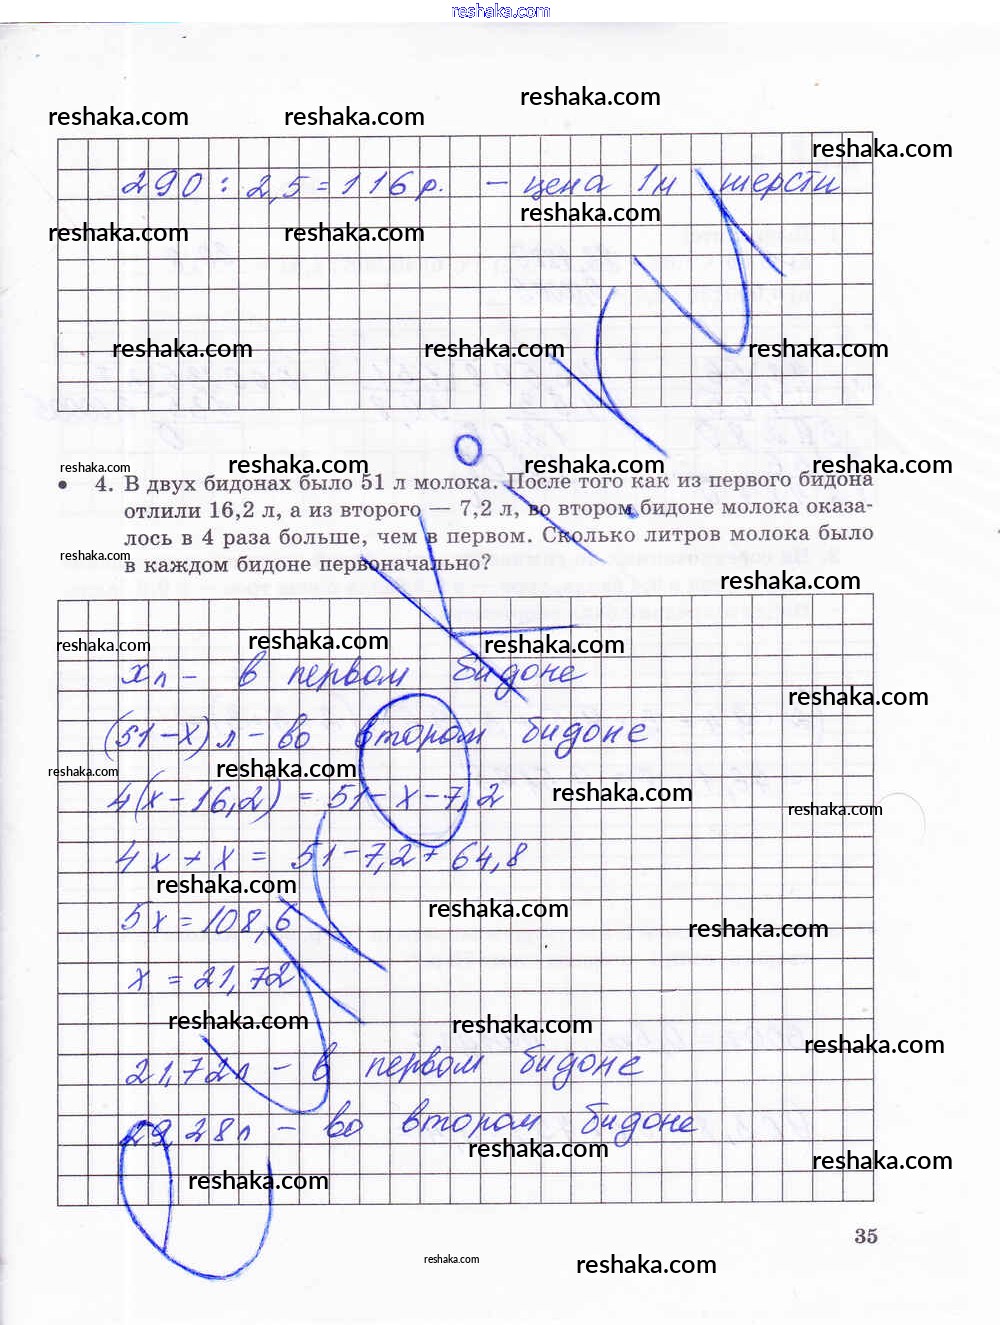 reshaka.com
reshaka.com
reshaka.com reshaka.com
reshaka.com
290 : 2,5 = 116 р. – цена 1м шерсти
reshaka.com
reshaka.com reshaka.com
reshaka.com reshaka.com reshaka.com
reshaka.com reshaka.com reshaka.com reshaka.com
• 4. В двух бидонах было 51 л молока. После того как из первого бидона
отлили 16,2 л, а из второго — 7,2 л, во втором бидоне молока оказа-
лось в 4 раза больше, чем в первом. Сколько литров молока было
reshaka.com
в каждом бидоне первоначально?
reshaka.com
reshaka.com reshaka.com reshaka.com
х л – в первом бидоне
reshaka.com
(51 – х) л – во втором бидоне
reshaka.com reshaka.com
4(х – 16,2) = 51 – х – 7,2
reshaka.com
reshaka.com
4х + х = 51 – 7,2 + 64,8
reshaka.com
reshaka.com
5х = 108,6
reshaka.com
х = 21,72
reshaka.com reshaka.com
reshaka.com
21,72л – в первом бидоне
29,28л – во втором бидоне
reshaka.com
reshaka.com
reshaka.com
35
reshaka.com
reshaka.com